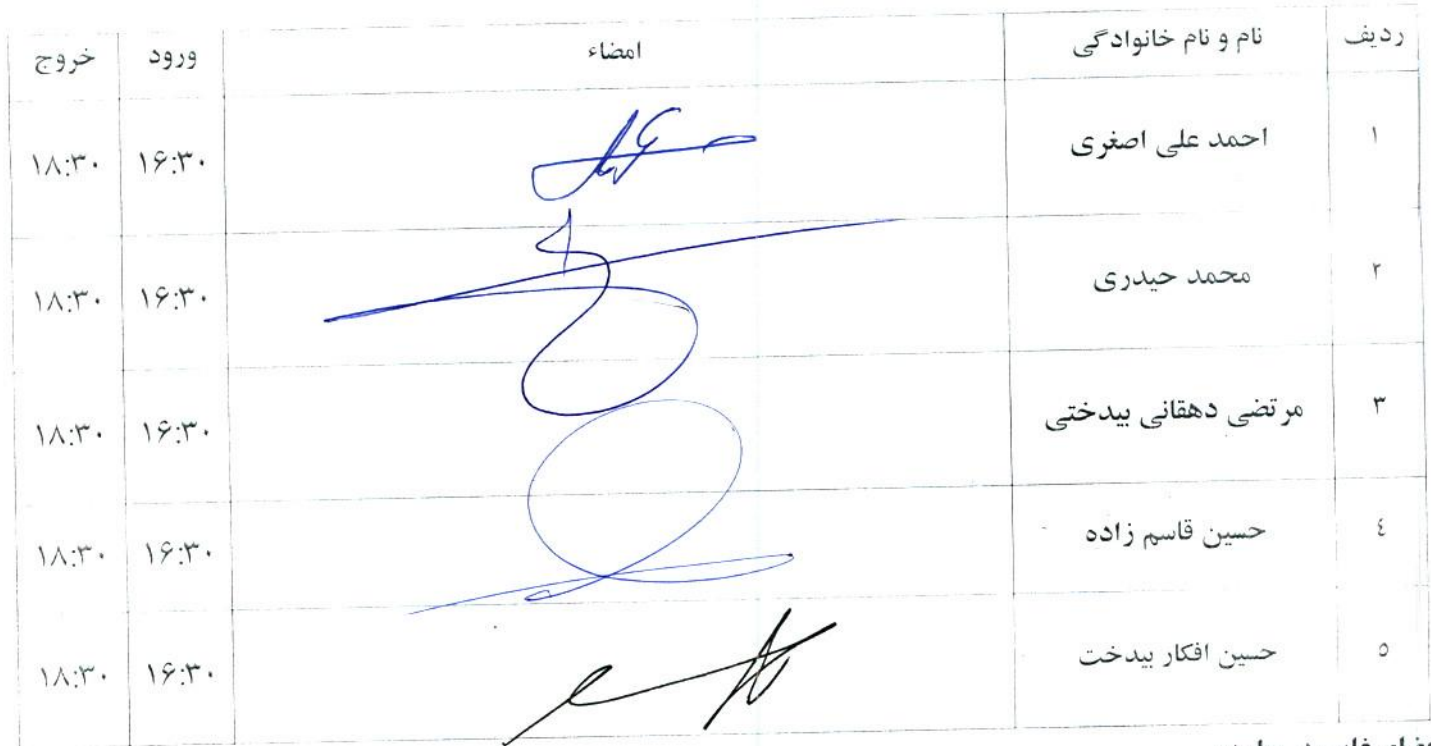 ردیف نام و نام خانوادگی امضاء ورود خروج
۱ احمد علی اصغری ۱۶:۳۰ ۱۸:۳۰
۲ محمد حیدری ۱۶:۳۰ ۱۸:۳۰
۳ مرتضی دهقانی بیدختی ۱۶:۳۰ ۱۸:۳۰
٤ حسین قاسم زاده ۱۶:۳۰ ۱۸:۳۰
٥ حسین افکار بیدخت ۱۶:۳۰ ۱۸:۳۰